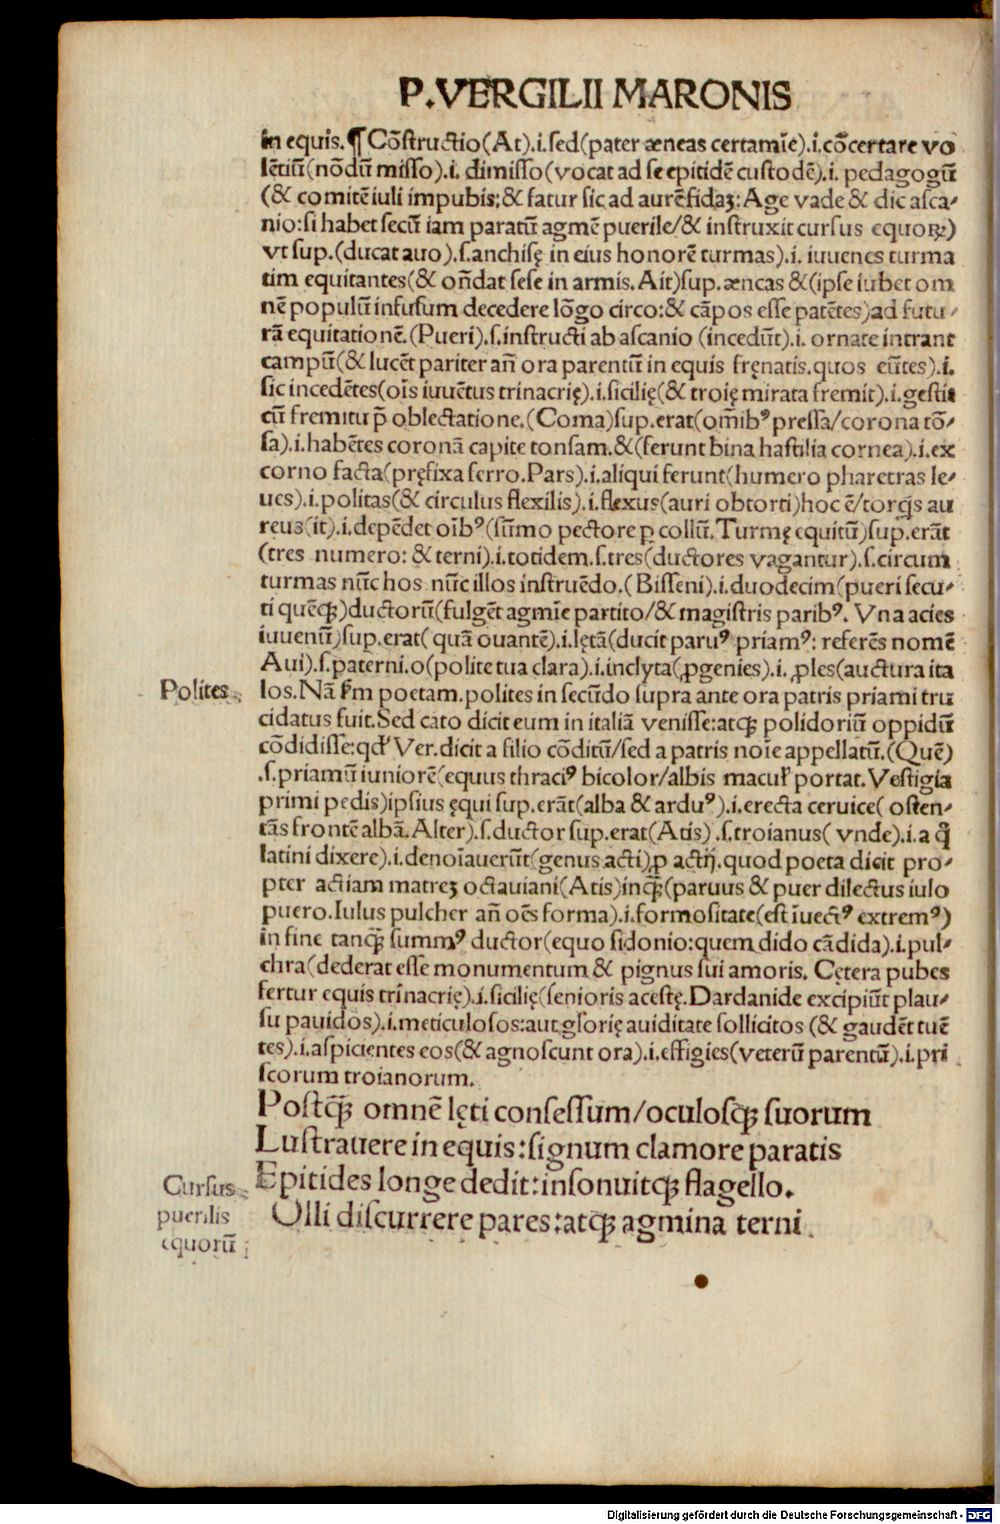 P.VERGILII MARONIS
in equis.¶ Cõstructio(At).i.sed(pater æneas certamĩe).i.cõcertare vo
lẽtiũ(nõdũ misso).i. dimisso(vocat ad se epitidẽ custodẽ).i. pedagogũ
(& comitẽ iuli impubis;& fatur sic ad aurẽ fidaʒ: Age vade & dic asca-
nio:si habet secũ iam paratũ agmẽ puerile/& instruxit cursus equoꝝ)
vt sup.(ducat auo).s.anchisę in eius honorẽ turmas).i. iuuenes turma
tim equitantes(& oñdat sese in armis. Ait)sup. æneas &(ipse iubet om
nẽ populũ infusum decedere lõgo circo:& cãpos esse patẽtes)ad futu-
rã equitationẽ.(Pueri).s.instructi ab ascanio (incedũt).i. ornate intrant
campũ(& lucẽt pariter añ ora parentũ in equis fręnatis.quos eũtes).i.
sic incedẽtes(oĩs iuuẽtus trinacrię).i.sicilię(& troię mirata fremit).i.gestit
cũ fremitu p̃ oblectatione.(Coma)sup.erat(om̃ibꝰ pressa/corona tõ-
sa).i.habẽtes coronã capite tonsam.&(ferunt bina hastilia cornea).i.ex
corno facta(pręfixa ferro.Pars).i.aliqui ferunt(humero pharetras le-
ues).i.politas(& circulus flexilis).i.flexus(auri obtorti)hoc ẽ/torq̃s au
reus(it).i.depẽdet oĩbꝰ(sũmo pectore ꝑ collũ.Turmę equitũ)sup.erãt
(tres numero: & terni).i.totidem.s.tres(ductores vagantur).s.circum
turmas nũc hos nũc illos instruẽdo.(Bisseni).i.duodecim(pueri secu-
ti quẽqꝫ)ductorũ(fulgẽt agmĩe partito/& magistris paribꝰ. Vna acies
iuuenũ)sup.erat(quã ouantẽ).i.lętã(ducit paruꝰ priamꝰ: referẽs nomẽ
Aui).s.paterni.o(polite tua clara).i.inclyta(ꝓgenies).i. ꝓles(auctura ita
los.Nã ẜm poetam.polites in secũdo supra ante ora patris priami tru
cidatus fuit.Sed cato dicit eum in italiã venisse:atqꝫ polidoriũ oppidũ
cõdidisse:qđ Ver.dicit a filio cõditũ/sed a patris noĩe appellatũ.(Quẽ)
.s.priamũ iuniorẽ(equus thraciꝰ bicolor/albis macuł portat.Vestigia
primi pedis)ipsius ęqui sup.erãt(alba & arduꝰ).i.erecta ceruice( osten-
tãs frontẽ albã.Alter).s.ductor sup.erat(Atis) .s.troianus( vnde).i.a q̃
latini dixere).i.denoĩauerũt(genus acti)ꝓ actĳ.quod poeta dicit pro-
pter actiam matreʒ octauiani(Atis)inqꝫ(paruus & puer dilectus iulo
puero.Iulus pulcher añ oẽs forma).i.formositate(est ĩuectꝰ extremꝰ)
in fine tanqꝫ summꝰ ductor(equo sidonio:quem dido cãdida).i.pul-
chra(dederat esse monumentum & pignus sui amoris. Cętera pubes
fertur equis trinacrię).i.sicilię(senioris acestę.Dardanide excipiũt plau-
su pauidos).i.meticulosos:aut glorię auiditate sollicitos (& gaudẽt tuẽ
tes).i.aspicientes eos(& agnoscunt ora).i.effigies(veterũ parentũ).i.pri
scorum troianorum.
Polites
Postqꝫ omnẽ lęti consessum/oculosqꝫ suorum
Lustrauere in equis:signum clamore paratis
Epitides longe dedit:insonuitqꝫ flagello.
Olli discurrere pares:atqꝫ agmina terni
Cursus
puerilis
equorũ
Digitalisierung gefördert durch die Deutsche Forschungsgemeinschaft - DFG